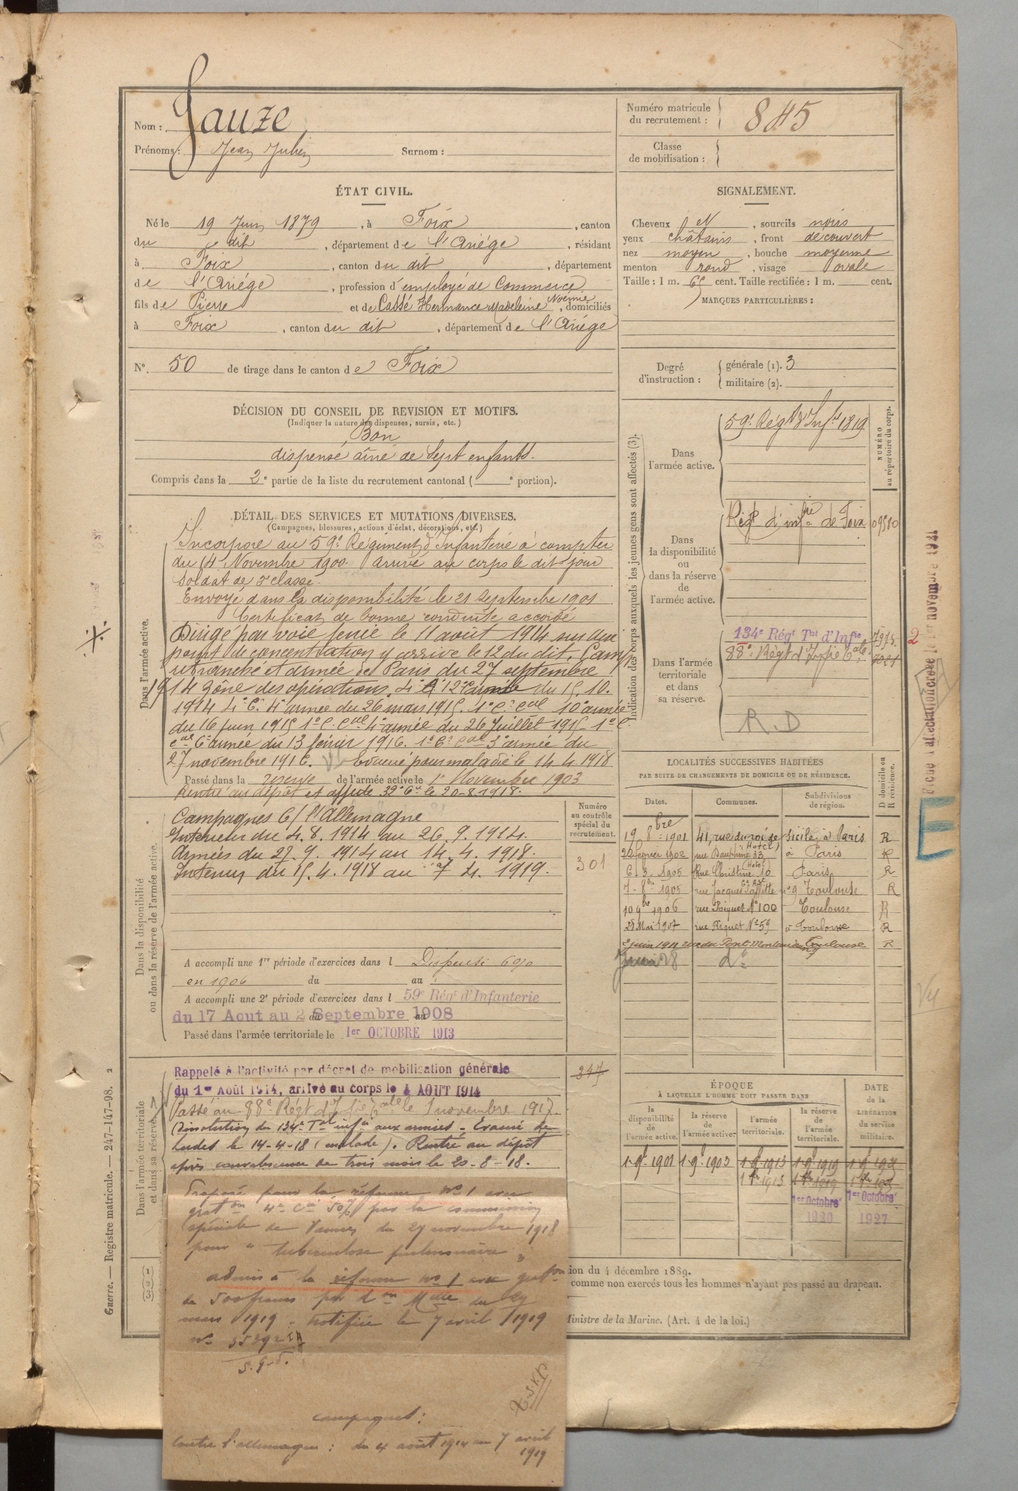 Nom : Gauze
Prénoms : Jean Julien Surnom :
Numéro matricule du recrutement : 845
Classe de mobilisation :
ÉTAT CIVIL.
Né le 19 Juin 1879, à Foix, canton
du dit, département de l'Ariége, résidant
à Foix, canton du dit, département
de l'Ariége, profession d'employé de Commerce
fils de Pierre et de Cassé Hermance Madeleine Noémie, domiciliés
à Foix, canton du dit, département de l'Ariége
N° 50 de tirage dans le canton de Foix
SIGNALEMENT.
Cheveux et, sourcils noirs
yeux châtains, front découvert
nez moyen, bouche moyenne
menton rond, visage ovale
Taille : 1 m. 65 cent. Taille rectifiée : 1 m. cent.
MARQUES PARTICULIÈRES :
Degré d'instruction : générale (1). 3
militaire (2).
DÉCISION DU CONSEIL DE REVISION ET MOTIFS.
(Indiquer la nature des dispenses, sursis, etc.)
Bon
dispensé aîné de sept enfants.
Compris dans la 2e partie de la liste du recrutement cantonal ( e portion).
DÉTAIL DES SERVICES ET MUTATIONS DIVERSES.
(Campagnes, blessures, actions d'éclat, décorations, etc.)
Dans l'armée active.
Incorporé au 59e Régiment d'Infanterie à compter
du 14 Novembre 1900 arrivé au corps le dit jour
Soldat de 2e classe
Envoyé dans la disponibilité le 21 Septembre 1901
Certificat de bonne conduite accordé
Dirigé par voie ferrée le 11 août 1914 sur un
point de concentration y arrive le 12 du dit. Camp
retranché et armée de Paris du 27 septembre
1914 zône des opérations, 4e C 12e armée du 15.10.
1914 4e C. 4e armée du 26 mars 1915. 1er C. cal 10e armée
du 16 juin 1915 1er C. cal 4e armée du 26 Juillet 1915 - 1er C
cal 6e armée du 13 février 1916. 1er C. cal 3e armée du
27 novembre 1916. Evacué pour maladie le 14.4.1918
Passé dans la réserve de l'armée active le 1er Novembre 1903
Rentré au dépôt et affecté 32e Cie le 20-8-1918.
Dans la disponibilité ou dans la réserve de l'armée active.
Campagnes C/ l'Allemagne
Intérieur du 4.8.1914 au 26.9.1914.
Armées du 27.9.1914 au 14.4.1918.
Intérieur du 15.4.1918 au 7 4.1919.
A accompli une 1re période d'exercices dans l Dispensé 6%
en 1906 du au
A accompli une 2e période d'exercices dans l 59e Régt d'Infanterie
du 17 Aout au 2 Septembre 1908
Passé dans l'armée territoriale le 1er OCTOBRE 1913
Numéro au contrôle spécial du recrutement.
301
247
Dans l'armée territoriale et dans sa réserve.
Rappelé à l'activité par décret de mobilisation générale
du 1er Août 1914, arrivé au corps le 4 AOUT 1914
Passé au 88e Régt d'Inf. Tale le 1 novembre 1917.
(Dissolution du 134e Tal infie aux armées - Evacué de
Ludes le 14-4-18 (malade). Rentré au dépôt
après convalescence de trois mois le 20-8-18.
Proposé pour la réforme n° 1 avec
graton par la commission
spéciale de Vannes du 29 novembre 1918
pour "tuberculose pulmonaire"
admis à la réforme n° 1 avec graton
de 500 francs par don Mlle du 29
mars 1919 - notifiée le 7 avril 1919
campagnes :
Contre l'allemagne : du 4 août 1914 au 7 avril
1919
Indication des corps auxquels les jeunes gens sont affectés (3).
NUMÉRO au répertoire du corps.
Dans l'armée active.
59e Régt d'Infie 1819
Dans la disponibilité ou dans la réserve de l'armée active.
Régt d'infie de Foix 09580
Dans l'armée territoriale et dans sa réserve.
134e Régt Tal d'Infie
88e Régt d'Infie Tale
R.D
LOCALITÉS SUCCESSIVES HABITÉES
PAR SUITE DE CHANGEMENTS DE DOMICILE OU DE RÉSIDENCE.
Dates. Communes. Subdivisions de région. D domicile ou R résidence.
19 8bre 1901 41, rue du roi de Sicile, à Paris R
20 février 1902 rue Dauphine 33 (Hotel) à Paris R
6.3.1905 Rue Christine 10 (Hotel) Paris R
7-8bre 1905 rue Jacques Laffitte n° 9 Toulouse R
10 9bre 1906 rue Riquet N° 100 Toulouse R
28 Mai 1907 rue Riquet N° 59 à Toulouse R
Toulouse R
Juin 28 do
ÉPOQUE
À LAQUELLE L'HOMME DOIT PASSER DANS
la disponibilité de l'armée active. la réserve de l'armée active. l'armée territoriale. la réserve de l'armée territoriale. DATE de la LIBÉRATION du service militaire.
1 9bre 1901 1 9bre 1903 1 9bre 1913 1 9bre 1919
1er Octobre 1920 1er Octobre 1927
ion du 4 décembre 1889.
comme non exercés tous les hommes n'ayant pas passé au drapeau.
Ministre de la Marine. (Art. 4 de la loi.)
Guerre. — Registre matricule. — 247-147-98. 2
2
E
Vu